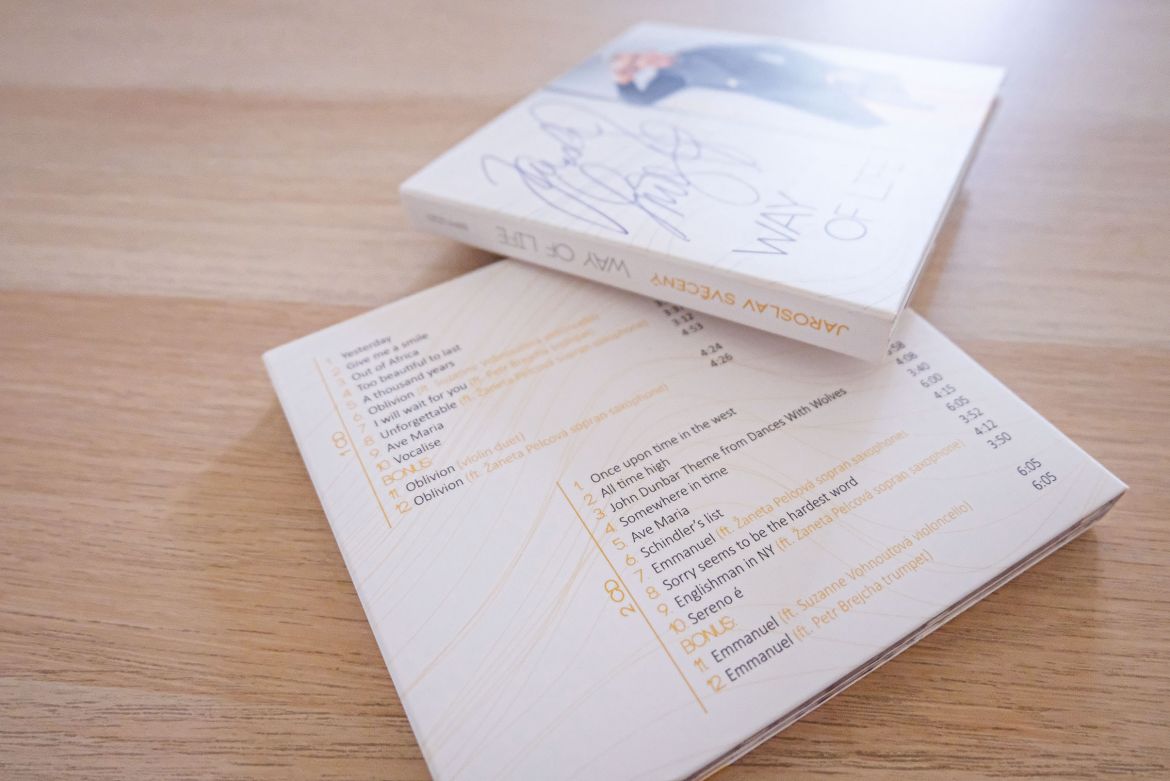 WAY
OF LIFE
JAROSLAV SVĚCENÝ WAY OF LIFE
CD 1
1 Yesterday
2 Give me a smile
3 Out of Africa
4 Too beautiful to last
5 A thousand years
6 Oblivion (ft. Suzanne Vohnoutová violoncello)
7 I will wait for you (ft. Petr Brejcha trumpet)
8 Unforgettable (ft. Žaneta Pelcová sopran saxophone)
9 Ave Maria 3:12
10 Vocalise 4:53
BONUS:
11 Oblivion (violin duet) 4:24
12 Oblivion (ft. Žaneta Pelcová sopran saxophone) 4:26
CD 2
1 Once upon time in the west
2 All time high :58
3 John Dunbar Theme from Dances With Wolves 4:08
4 Somewhere in time 3:40
5 Ave Maria 6:00
6 Schindler's list 4:15
7 Emmanuel (ft. Žaneta Pelcová sopran saxophone) 6:05
8 Sorry seems to be the hardest word 3:52
9 Englishman in NY (ft. Žaneta Pelcová sopran saxophone) 4:12
10 Sereno é 3:50
BONUS:
11 Emmanuel (ft. Suzanne Vohnoutová violoncello) 6:05
12 Emmanuel (ft. Petr Brejcha trumpet) 6:05